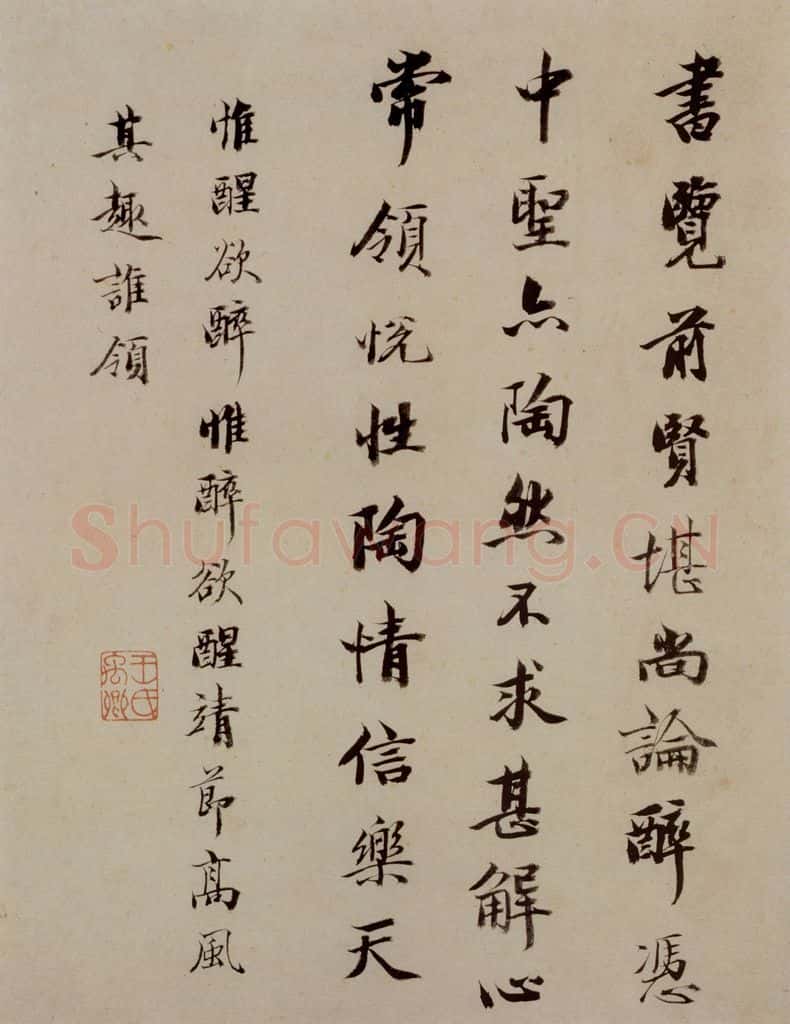 書覽前賢堪尚論醉憑
中聖亦陶然不求甚解心
常領悅性陶情信樂天
惟醒欲醉惟醉欲醒靖節高風
其趣誰領
ShufaWang.CN